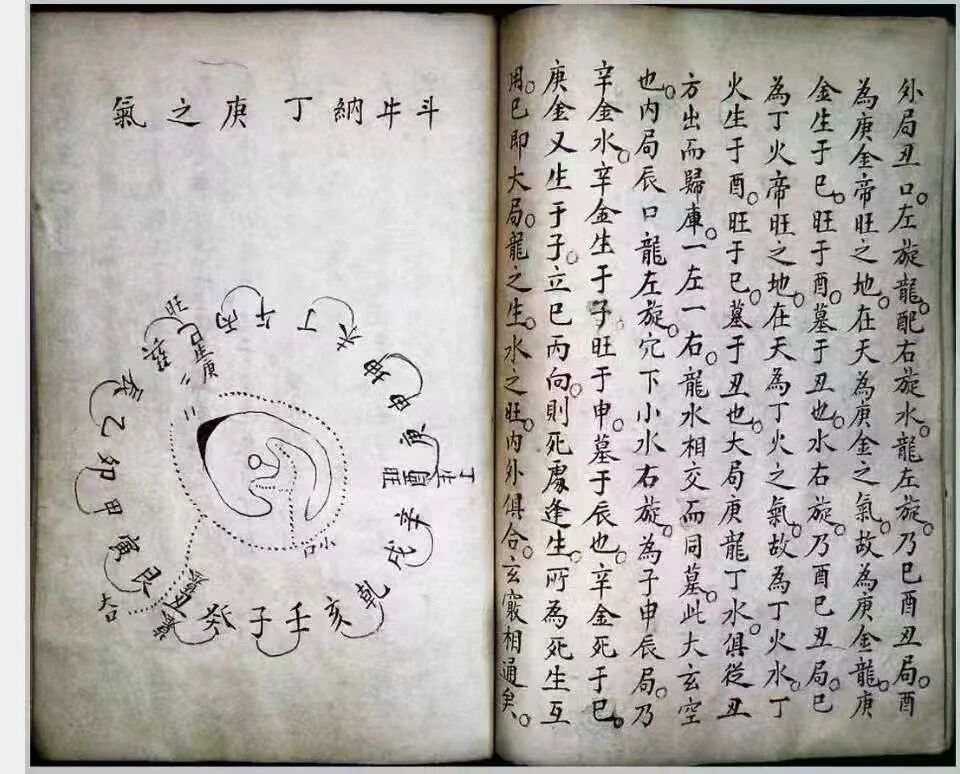 外局丑口。左旋龍。配右旋水。龍左旋。乃巳酉丑局。酉
為庚金帝旺之地。在天為庚金之氣。故為庚金龍。庚
金生于巳。旺于酉。墓于丑也。水右旋。乃酉巳丑局。巳
為丁火帝旺之地。在天為丁火之氣。故為丁火水。丁
火生于酉。旺于巳。墓于丑也。大局庚龍丁水。俱從丑
方出而歸庫。一左一右。龍水相交而同墓。此大玄空
也。內局辰口龍左旋。穴下小水右旋。為子申辰局。乃
辛金水。辛金生于子旺于申。墓于辰也。辛金死于巳。
庚金又生于子。立巳丙向。則死處逢生。所為死生互
用。巳即大局。龍之生。水之旺。內外俱合。玄竅相通矣。
斗牛納丁庚之氣
旺
生庚
丙
午
丁
未
坤
申
庚
酉
旺
辛
戌
乾
亥
壬
子
癸
丑
艮
寅
甲
卯
乙
辰
巽
巳
小口
大口